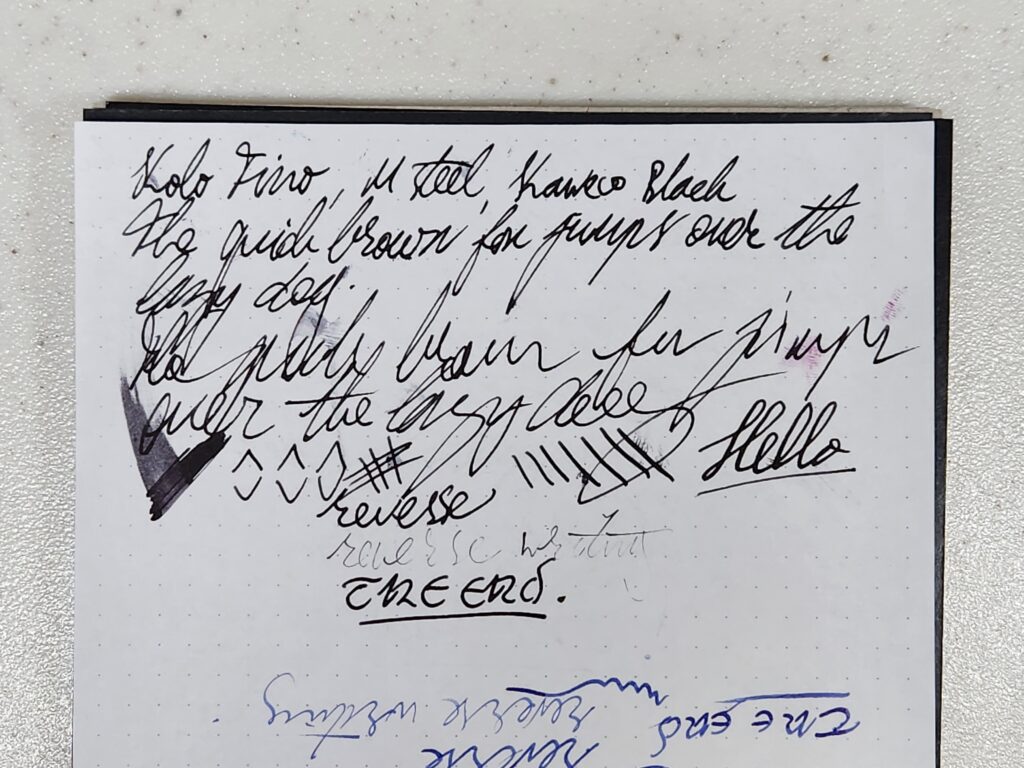 Kolo Tino, M steel, Kaweco Black
The quick brown fox jumps over the
lazy dog.
The quick brown fox jumps
over the lazy dog
Hello
reverse
reverse writing
THE END.
THE END
reverse writing
reverse